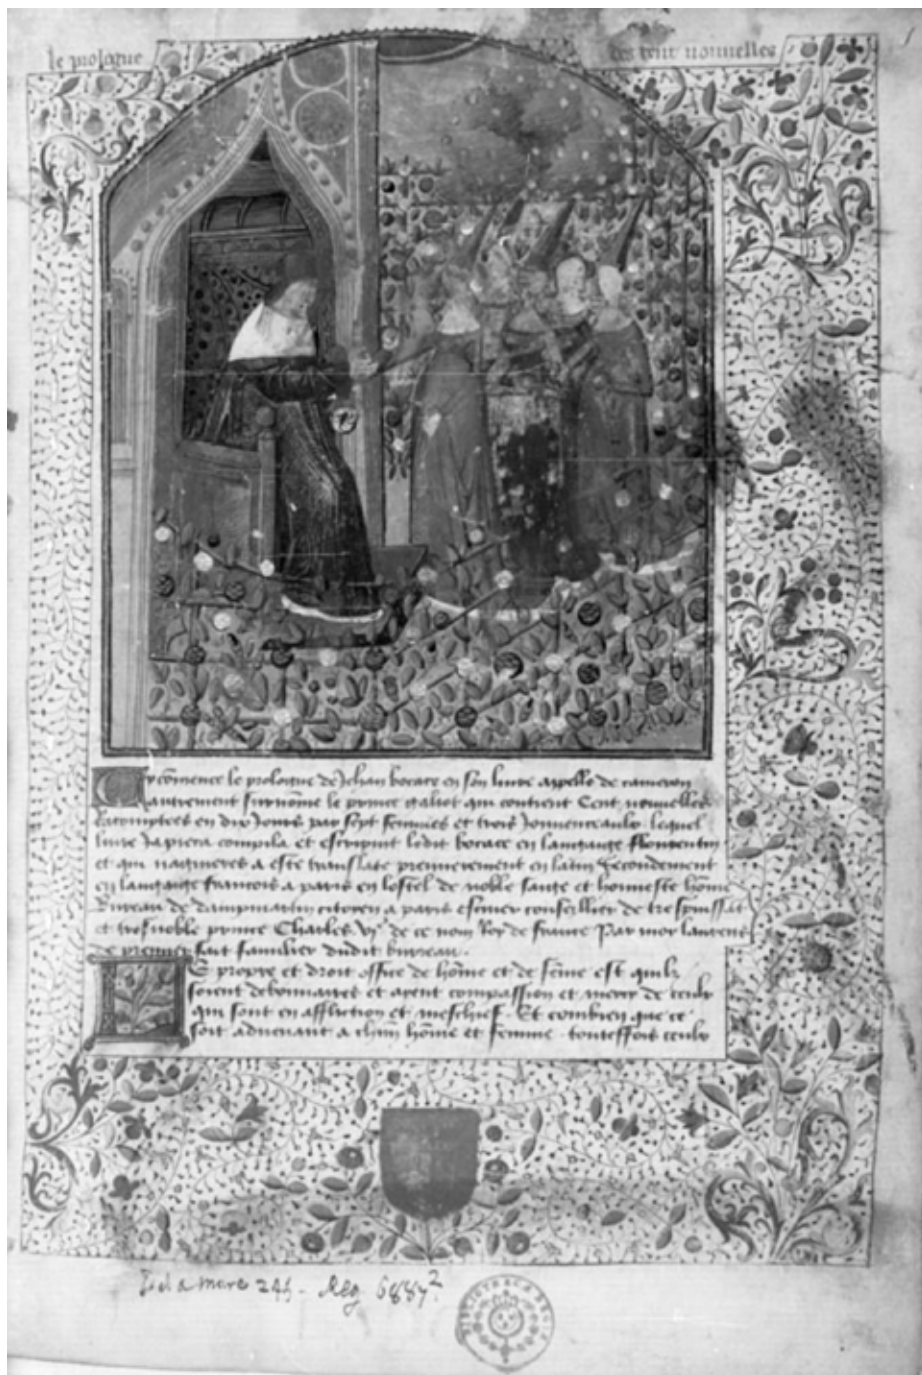 le prologue
des cent nouvelles
1
Cy cõmence le prologue de Jehan bocace en son livre appelle decameron
autrement surnõme le prince galiot qui contient Cent nouvelles
racomptees en dix Jours par sept femmes et trois Jouvenceaulx lequel
livre Ja pieca compila et escripvit ledit bocace en langaige florentin
et qui nagueres a este translate premierement en latin Secondement
en langaige francois a paris en lostel de noble saige et honneste hõme
Bureau de dampmartin citoyen de paris escuier conseillier de tres puissãt
et tresnoble prince Charles vjᵉ de ce nom Roy de france Par moy laurens
de premier fait familier dudit bureau .
Le propre et droit office de hõme et de fẽme est quilz
soient debonnaires et ayent compassion et mercy de ceulx
qui sont en affliction et meschief . Et combien que ce
soit advenant a chũn hõme et femme . touteffois ceulx
De la mare 245 . Reg. 6887²
BIBLIOTHECA REGIA